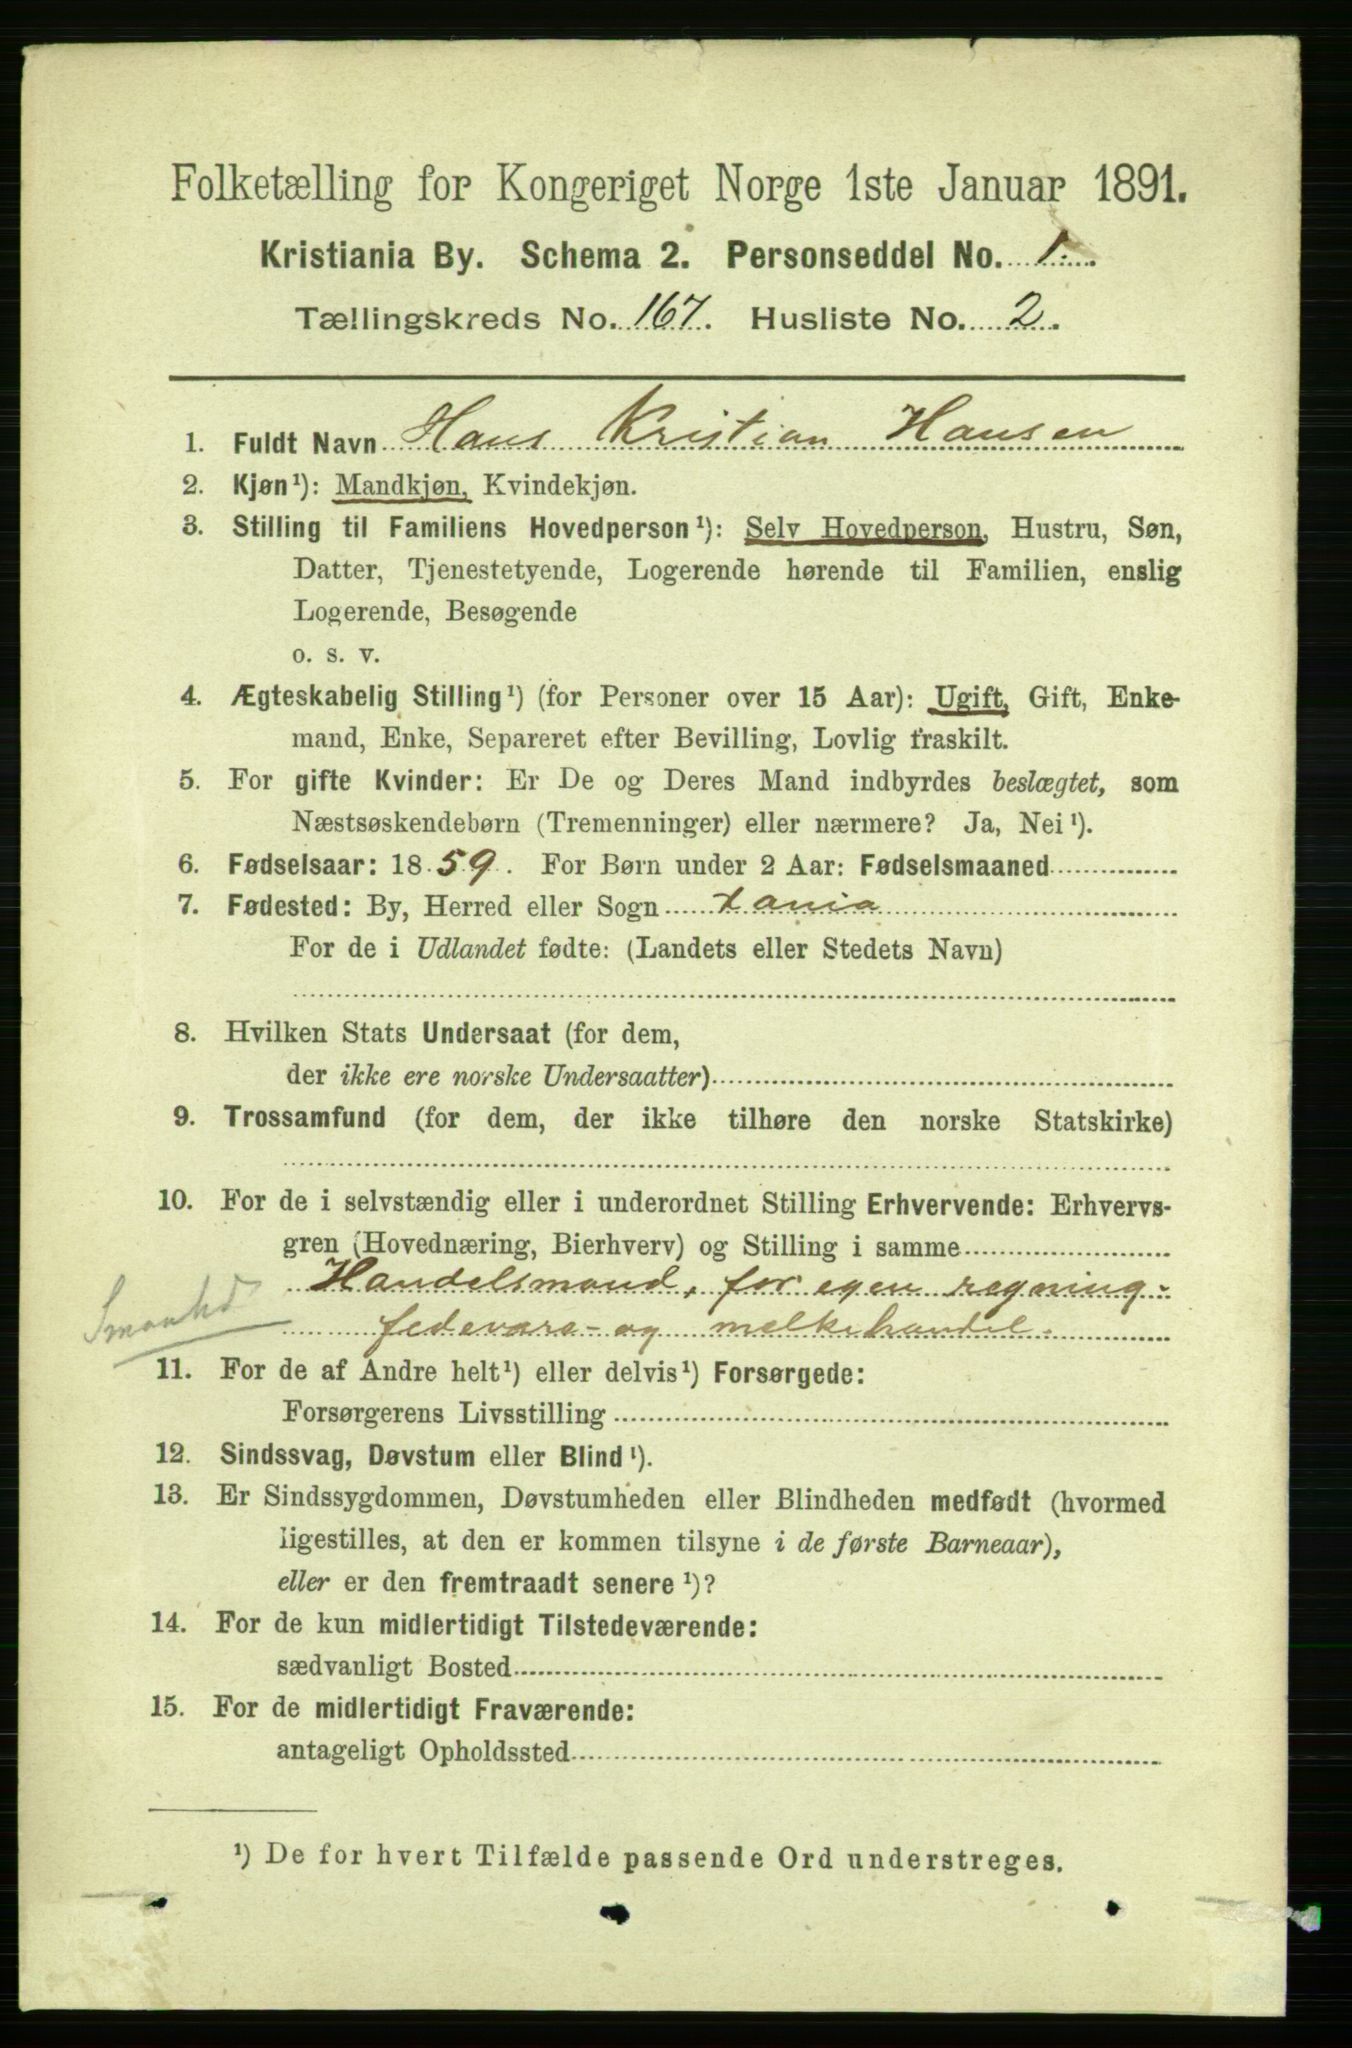 Folketælling for Kongeriget Norge 1ste Januar 1891.
Kristiania By. Schema 2. Personseddel No. 1.
Tællingskreds No. 167. Husliste No. 2.
1. Fuldt Navn Hans Kristian Hansen
2. Kjøn¹): Mandkjøn, Kvindekjøn.
3. Stilling til Familiens Hovedperson¹): Selv Hovedperson, Hustru, Søn,
Datter, Tjenestetyende, Logerende hørende til Familien, enslig
Logerende, Besøgende
o. s. v.
4. Ægteskabelig Stilling¹) (for Personer over 15 Aar): Ugift, Gift, Enke-
mand, Enke, Separeret efter Bevilling, Lovlig fraskilt.
5. For gifte Kvinder: Er De og Deres Mand indbyrdes beslægtet, som
Næstsøskendebørn (Tremenninger) eller nærmere? Ja, Nei¹).
6. Fødselsaar: 1859. For Børn under 2 Aar: Fødselsmaaned
7. Fødested: By, Herred eller Sogn Xania
For de i Udlandet fødte: (Landets eller Stedets Navn)
8. Hvilken Stats Undersaat (for dem,
der ikke ere norske Undersaatter)
9. Trossamfund (for dem, der ikke tilhøre den norske Statskirke)
10. For de i selvstændig eller i underordnet Stilling Erhvervende: Erhvervs-
gren (Hovednæring, Bierhverv) og Stilling i samme
Handelsmand, for egen regning-
Smaahd fedevare- og melkehandel.
11. For de af Andre helt¹) eller delvis¹) Forsørgede:
Forsørgerens Livsstilling
12. Sindssvag, Døvstum eller Blind¹).
13. Er Sindssygdommen, Døvstumheden eller Blindheden medfødt (hvormed
ligestilles, at den er kommen tilsyne i de første Barneaar),
eller er den fremtraadt senere¹)?
14. For de kun midlertidigt Tilstedeværende:
sædvanligt Bosted
15. For de midlertidigt Fraværende:
antageligt Opholdssted
¹) De for hvert Tilfælde passende Ord understreges.